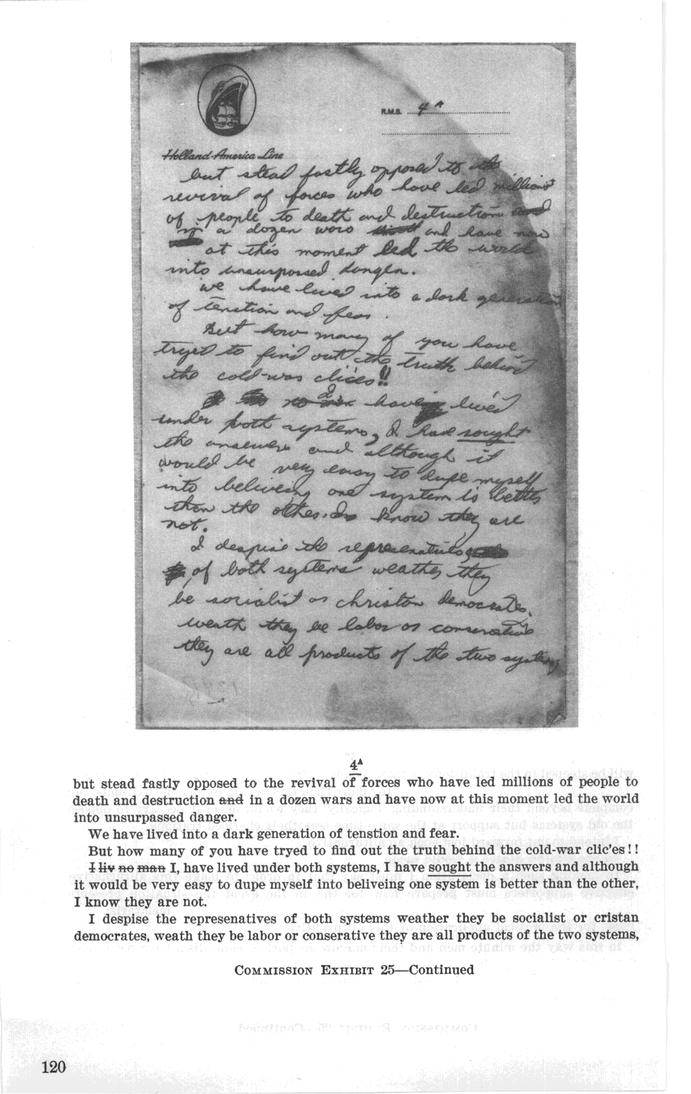 R.M.S. 4 A
Holland-America Line
but stead fastly opposed to the
revival of forces who have led millions
of people to death and destruction and
in a dozen wars and have now
at this moment led the world
into unsurpassed danger.
We have lived into a dark generation
of tenstion and fear.
But how many of you have
tryed to find out the truth behind
the cold-war clic'es!!
no man I having lived
under both systems, I have sought
the answers and although it
would be very easy to dupe myself
into beliveing one system is better
than the other, I know they are
not.
I despise the represenatives
of both systems weather they
be socialist or christan democrates,
weath they be labor or conserative
they are all products of the two systems
4A
but stead fastly opposed to the revival of forces who have led millions of people to
death and destruction and in a dozen wars and have now at this moment led the world
into unsurpassed danger.
We have lived into a dark generation of tenstion and fear.
But how many of you have tryed to find out the truth behind the cold-war clic'es!!
I liv no man I, have lived under both systems, I have sought the answers and although
it would be very easy to dupe myself into beliveing one system is better than the other,
I know they are not.
I despise the represenatives of both systems weather they be socialist or cristan
democrates, weath they be labor or conserative they are all products of the two systems,
COMMISSION EXHIBIT 25—Continued
120